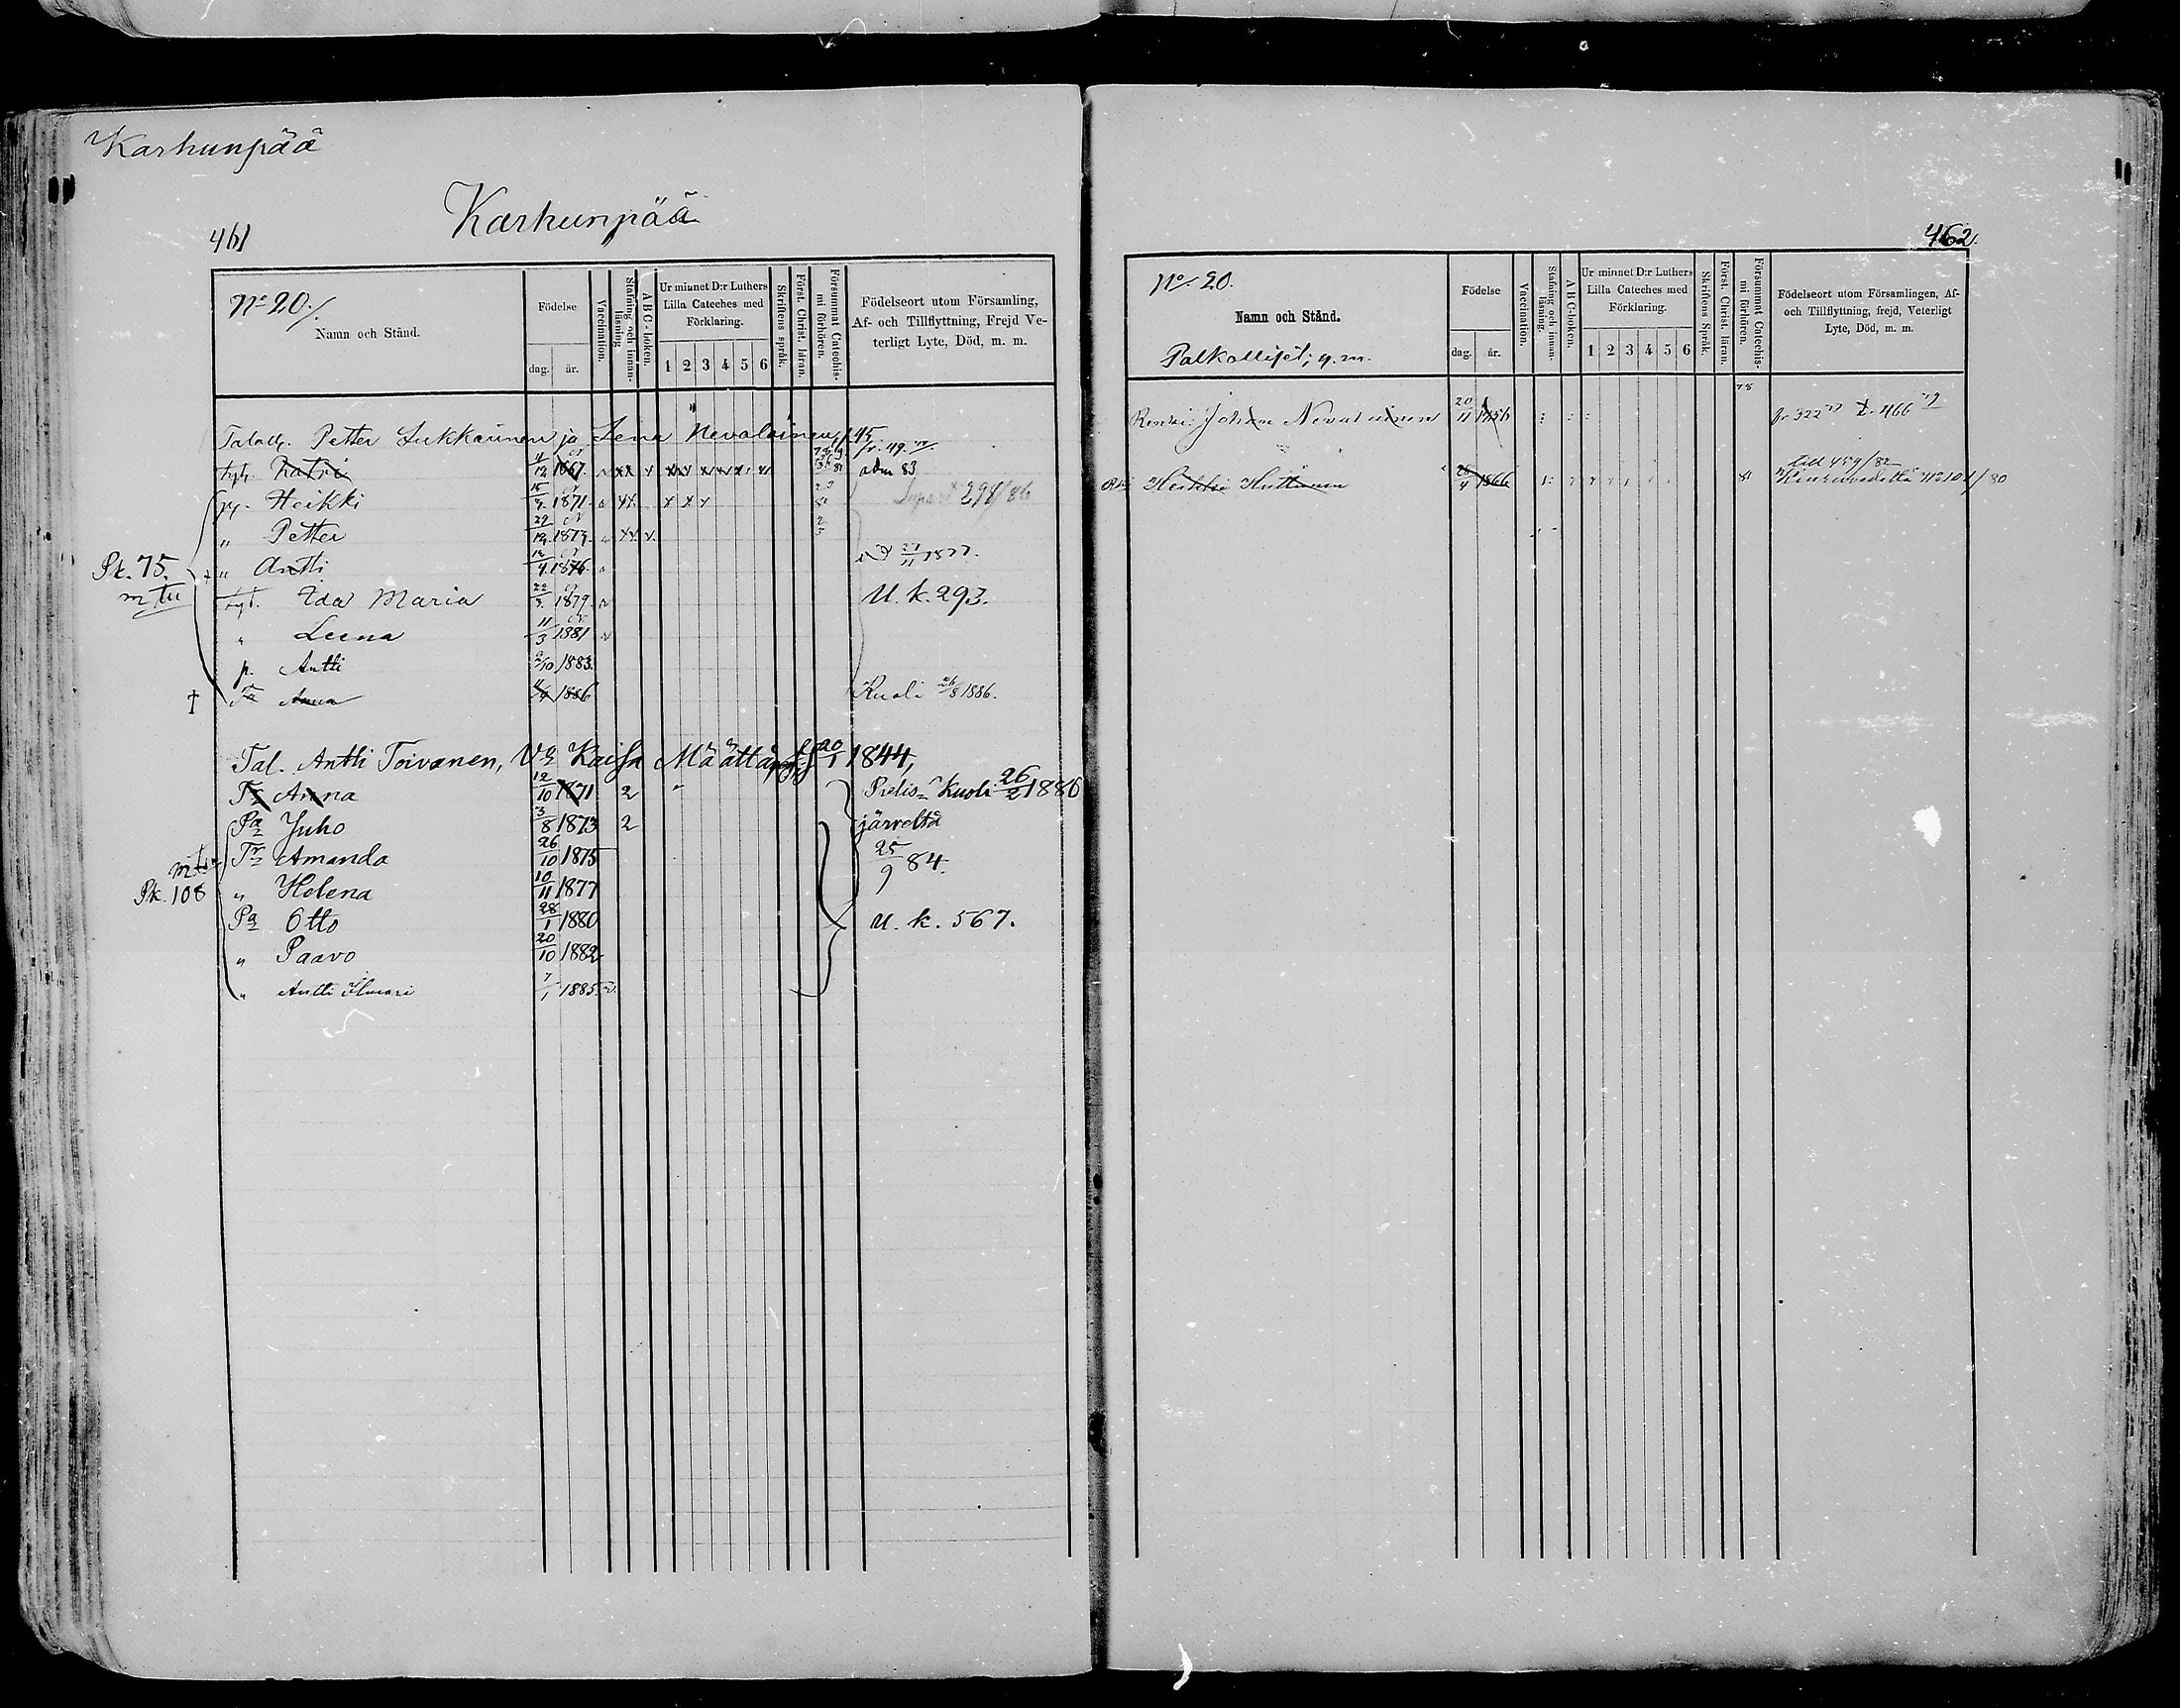 Karhunpää
Karhunpää
461
No 20./
Namn och Stånd.
Födelse
dag. år.
Vaccination.
Stafning och innanläsning
ABC-boken.
Ur minnet D:r Luthers Lilla Cateches med Förklaring.
1 2 3 4 5 6
Skriftens språk.
Först. Christ. läran.
Försummat Catechismi förhören.
Födelseort utom Församling, Af- och Tillflyttning, Frejd Veterligt Lyte, Död, m. m.
Petter Sukkainen ja Lena Nevalainen, 45
tyt. Katri 1867 fr. 49.
adm 83
Heikki 1871 298/86
" Petter 29 1873
" Antti 1876 1877.
Pk. 75.
tyt. Ida Maria 22 1879 U. k. 293.
" Leena 11/3 1881
p. Antti 1883
† Anna 1886 Kuoli 1886.
Tal. Antti Toivanen, Vo Kaisa Määttä 20/1 1844,
Tr Anna 12/10 1871 2 Pielis= Kuoli 26/2 1886
Pa Juho 3/8 1873 2 järveltä
Tr Amanda 26/10 1875 25/9 84.
Pk. 108 " Helena 10/11 1877
Pa Otto 28/1 1880 U. k. 567.
" Paavo 20/10 1882
" Antti Ilmari 7/1 1885
462.
No 20.
Namn och Stånd.
Palkolliset; y. m.
Födelse
dag. år.
Vaccination.
Stafning och innanläsning.
ABC-boken.
Ur minnet D:r Luthers Lilla Cateches med Förklaring.
1 2 3 4 5 6
Skriftens Språk.
Först. Christ. läran.
Försummat Catechismi förhören.
Födelseort utom Församlingen, Af- och Tillflyttning, frejd, Veterligt Lyte, Död, m. m.
78
Renki Johan Nevalainen 20/11 1856 fr 322 t. 466
till 459/82
Heikki Huttunen 1866 81